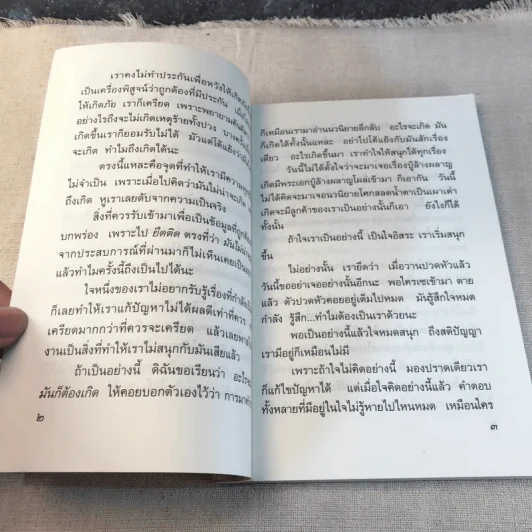 เราคงไม่ทำประกันเพื่อหวังให้เกิดภัย
เป็นเครื่องพิสูจน์ว่าถูกต้องที่มีประกัน
ให้เกิดภัย เราก็เครียด เพราะพยายามดันดึง
อย่างไรถึงจะไม่เกิดเหตุร้ายทั้งปวง บางครั้ง
เกิดขึ้นเราก็ยอมรับไม่ได้ มัวแต่โต้แย้งว่า
จะเกิด ทำไมถึงเกิดได้นะ
ตรงนี้แหละคือจุดที่ทำให้เรามีความทุกข์
ไม่จำเป็น เพราะเมื่อไปคิดว่ามันไม่น่าจะเกิด
ถึงเกิด หูเราเลยดับจากความเป็นจริง
สิ่งที่ควรรับเข้ามาเพื่อเป็นข้อมูลที่ถูก
บกพร่อง เพราะไป ยึดติด ตรงที่ว่า มันไม่น่า
จากประสบการณ์ที่ผ่านมาก็ไม่เห็นเคยเป็น
แล้วทำไมครั้งนี้ถึงเป็นไปได้นะ
ใจหนึ่งของเราไม่อยากรับรู้เรื่องที่กำลัง
ก็เลยทำให้เราแก้ปัญหาไม่ได้ผลดีเท่าที่ควร
เครียดมากกว่าที่ควรจะเครียด แล้วเลยพาล
งานเป็นสิ่งที่ทำให้เราไม่สนุกกับมันเสียแล้ว
ถ้าเป็นอย่างนี้ ดิฉันขอเรียนว่า อะไร
มันก็ต้องเกิด ให้คอยบอกตัวเองไว้ว่า การมา
๒
ก็เหมือนเรามาอ่านนวนิยายลึกลับ อะไรจะเกิด มัน
ก็เกิดได้ทั้งนั้นแหละ อย่าไปโต้แย้งกับมันสักเรื่อง
เดียว อะไรเกิดขึ้นมา เราทำใจให้สนุกได้ทุกเรื่อง
วันนี้ไม่ได้ตั้งใจว่าจะมาเจอเรื่องบู๊ล้างผลาญ
เกิดมีพระเอกบู๊ล้างผลาญโผล่เข้ามา ก็เอากัน วันนี้
ไม่ได้คิดจะมาเจอนวนิยายโศกสลดน้ำตาเป็นเผาเต่า
เกิดจะมีลูกค้าของเราเป็นอย่างนั้นก็เอา ยังไงก็ได้
ทั้งนั้น
ถ้าใจเราเป็นอย่างนี้ เป็นใจอิสระ เราเริ่มสนุก
ขึ้น
ไม่อย่างนั้น เรายึดว่า เมื่อวานปวดหัวแล้ว
วันนี้ขออย่าเจออย่างนั้นอีกนะ พอใครเรเข้ามา ตาย
แล้ว ตัวปวดหัวคอยอยู่เต็มไปหมด มันรู้สึกใจหมด
กำลัง รู้สึก...ทำไมต้องเป็นเราด้วยนะ
พอเป็นอย่างนี้แล้วใจหมดสนุก ถึงสติปัญญา
เรามีอยู่ก็เหมือนไม่มี
เพราะถ้าใจไม่คิดอย่างนี้ มองปราดเดียวเรา
ก็แก้ไขปัญหาได้ แต่เมื่อใจคิดอย่างนี้แล้ว คำตอบ
ทั้งหลายที่มีอยู่ในใจไม่รู้หายไปไหนหมด เหมือนใคร
๓